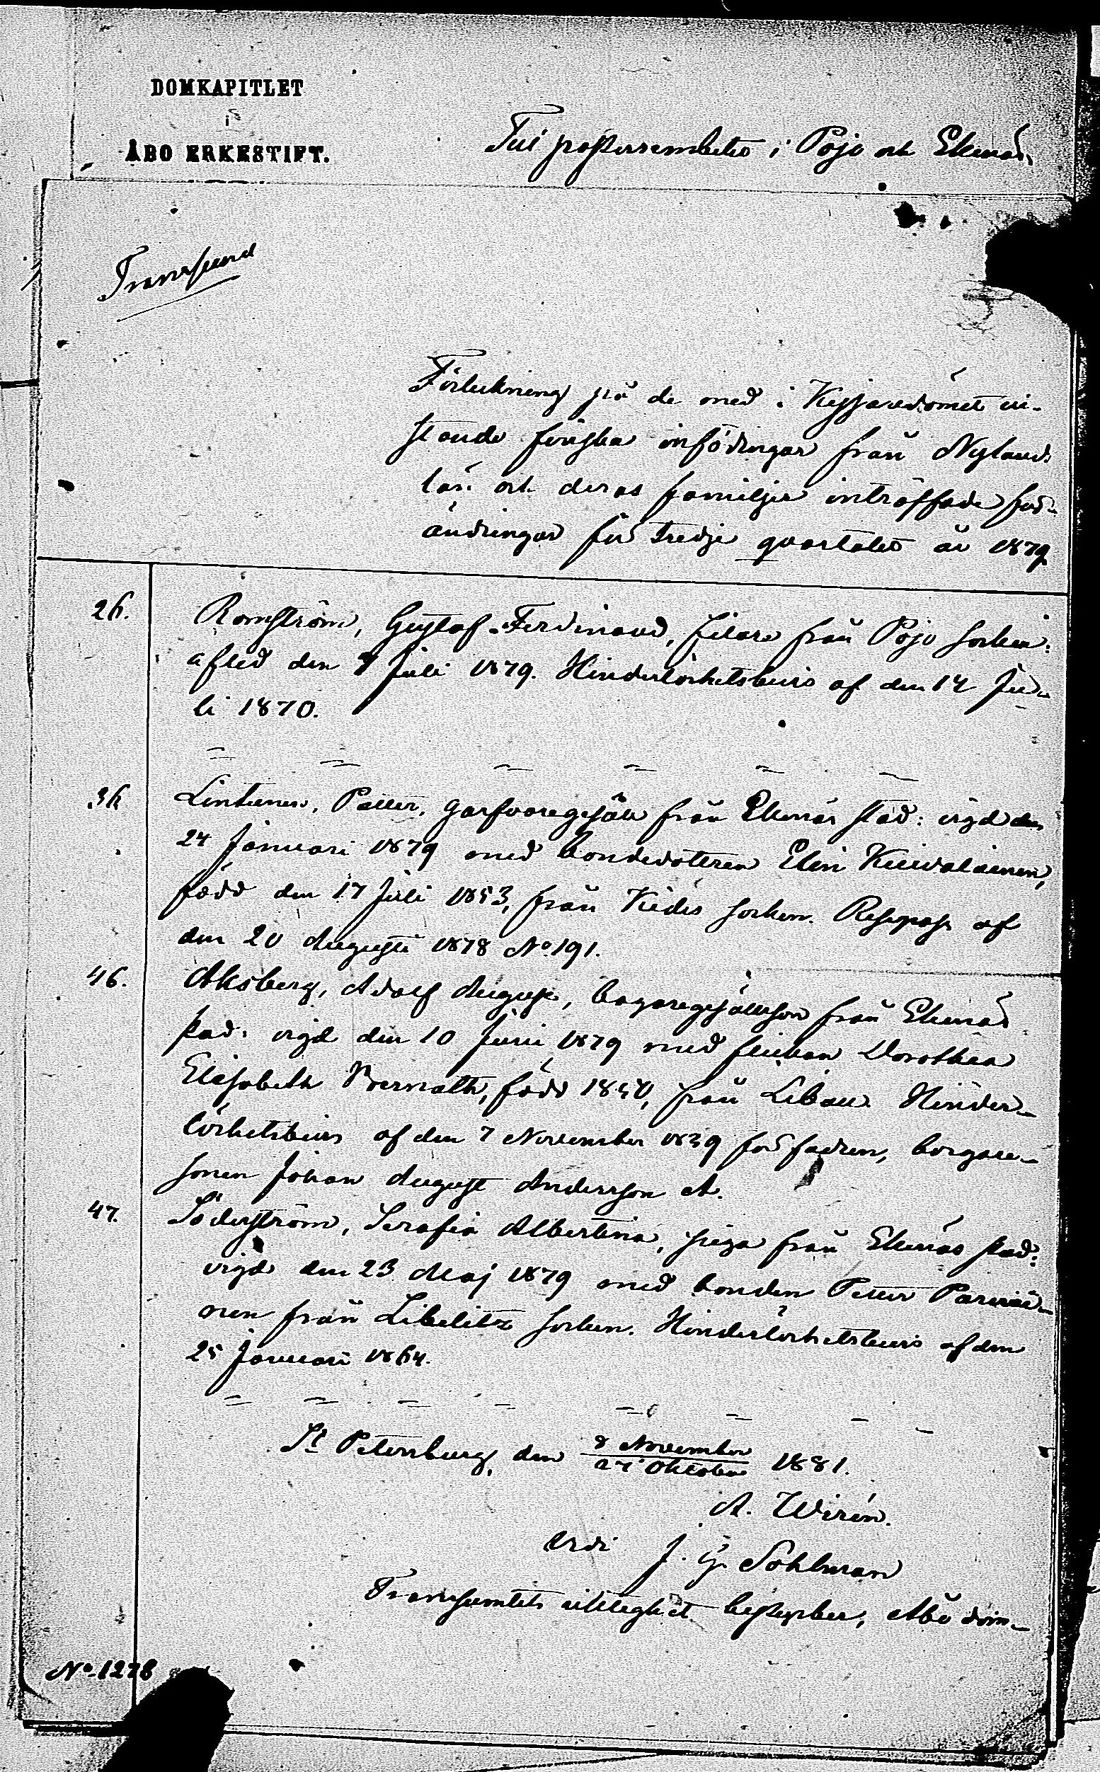 DOMKAPITLET
i
ÅBO ERKESTIFT.
Till pastorsembetet i Pojo och Ekenäs.
Transsumt
Förteckning på de med i Kejsaredömet vi-
stande finska infödingar från Nylands
län och deras familjer inträffade för-
ändringar för tredje qvartalet år 1879
26.
Romström, Gustaf Ferdinand, filare från Pojo socken:
afled den 7 Juli 1879. Hinderlöshetsbevis af den 14 Ju-
li 1870.
36
Lintunen, Petter, garfvaregesäll från Ekenäs stad: vigd den
24 Januari 1879 med bondedottren Elin Kuivalainen,
född den 17 Juli 1853, från Kides socken. Respass af
den 20 Augusti 1878 No 191.
46.
Alksberg, Adolf August, bagaregesällson från Ekenäs
stad: vigd den 10 Juni 1879 med flickan Dorothea
Elisabeth, född 1840, från Libau. Hinder-
löshetsbevis af den 7 November 1839 för fadren, borgare-
sonen Johan August Andersson A.
47.
Söderström, Serafia Albertina, piga från Ekenäs stad:
vigd den 23 Maj 1879 med bonden Petter Parviai-
nen från Libelitz socken. Hinderlöshetsbevis af den
25 Januari 1864.
St Petersburg, den 8 November
27 Oktober 1881.
A. Wirén.
Vidi J. G. Sohlman
Transsumtets riktighet bestyrker, Åbo dom-
No 1278